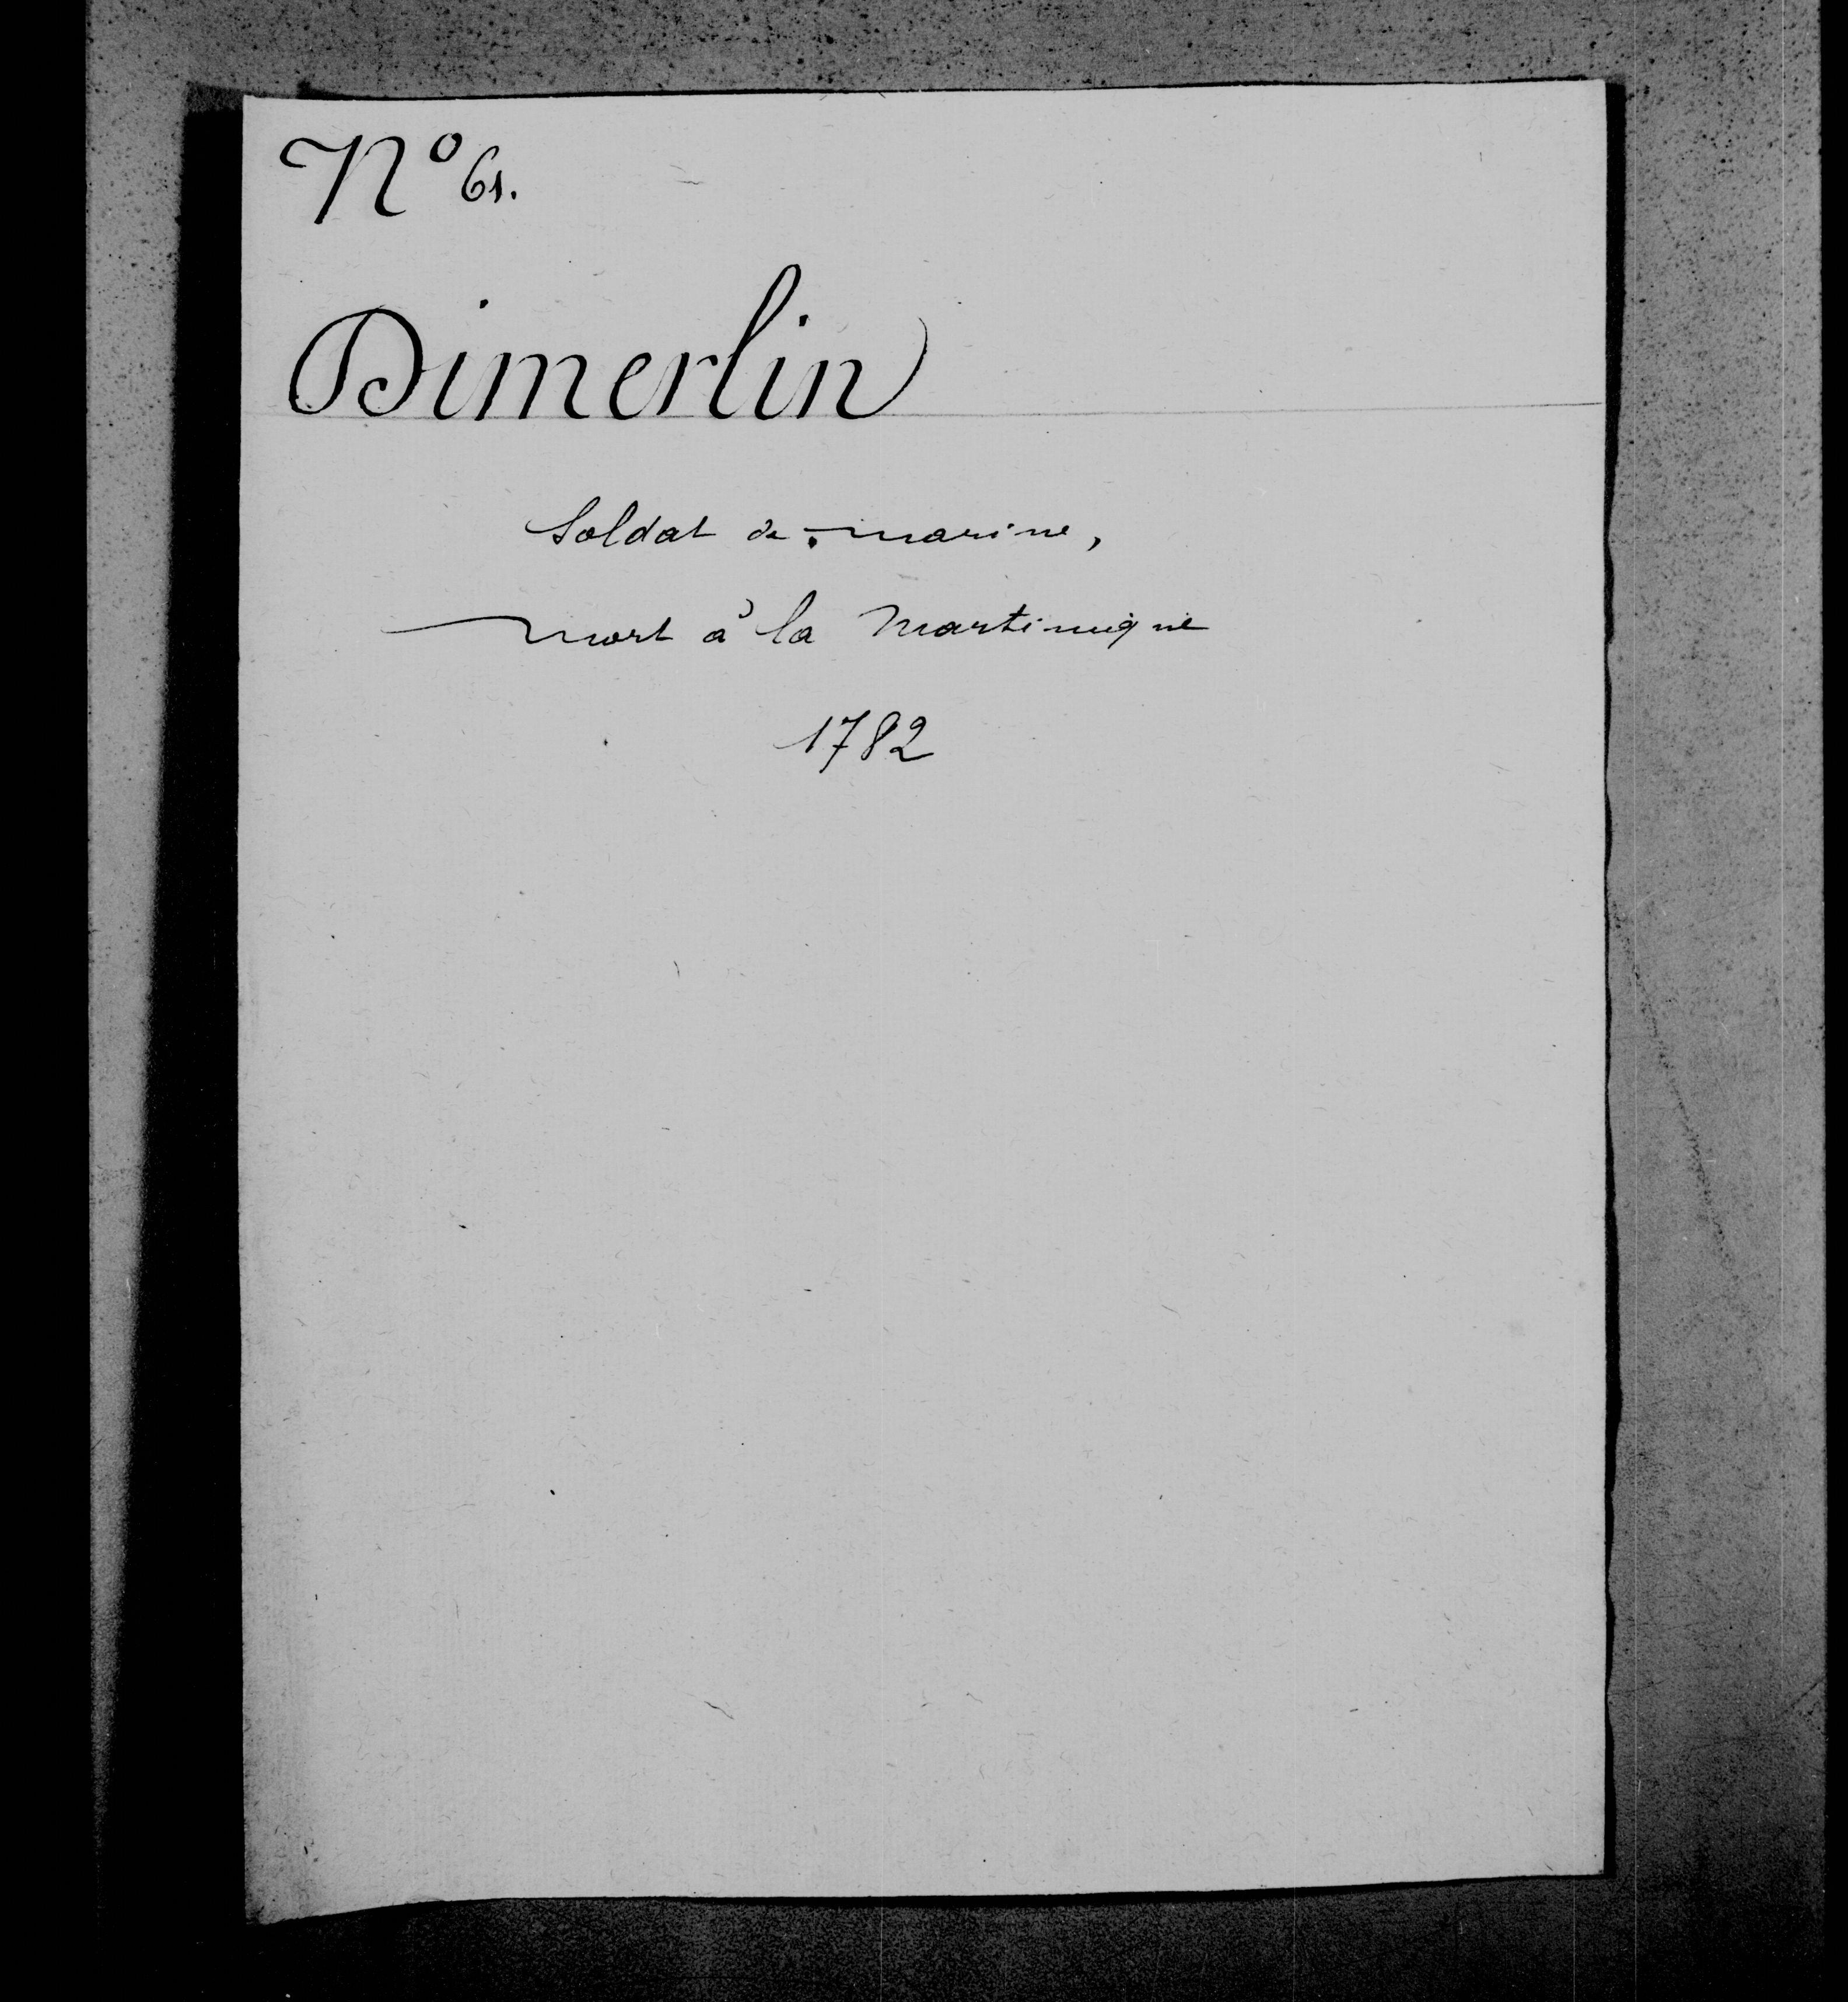 N° 61.
Dimerlin
Soldat de marine,
mort à la Martinique
1782